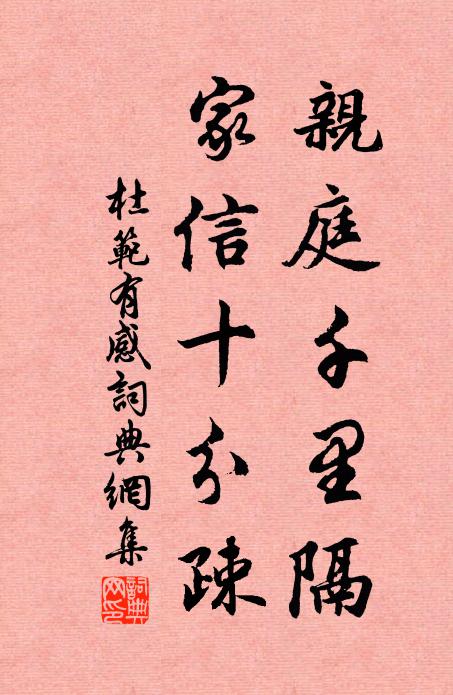 親庭千里隔
家信十分疎
杜範有感詞典網集
詞典網印